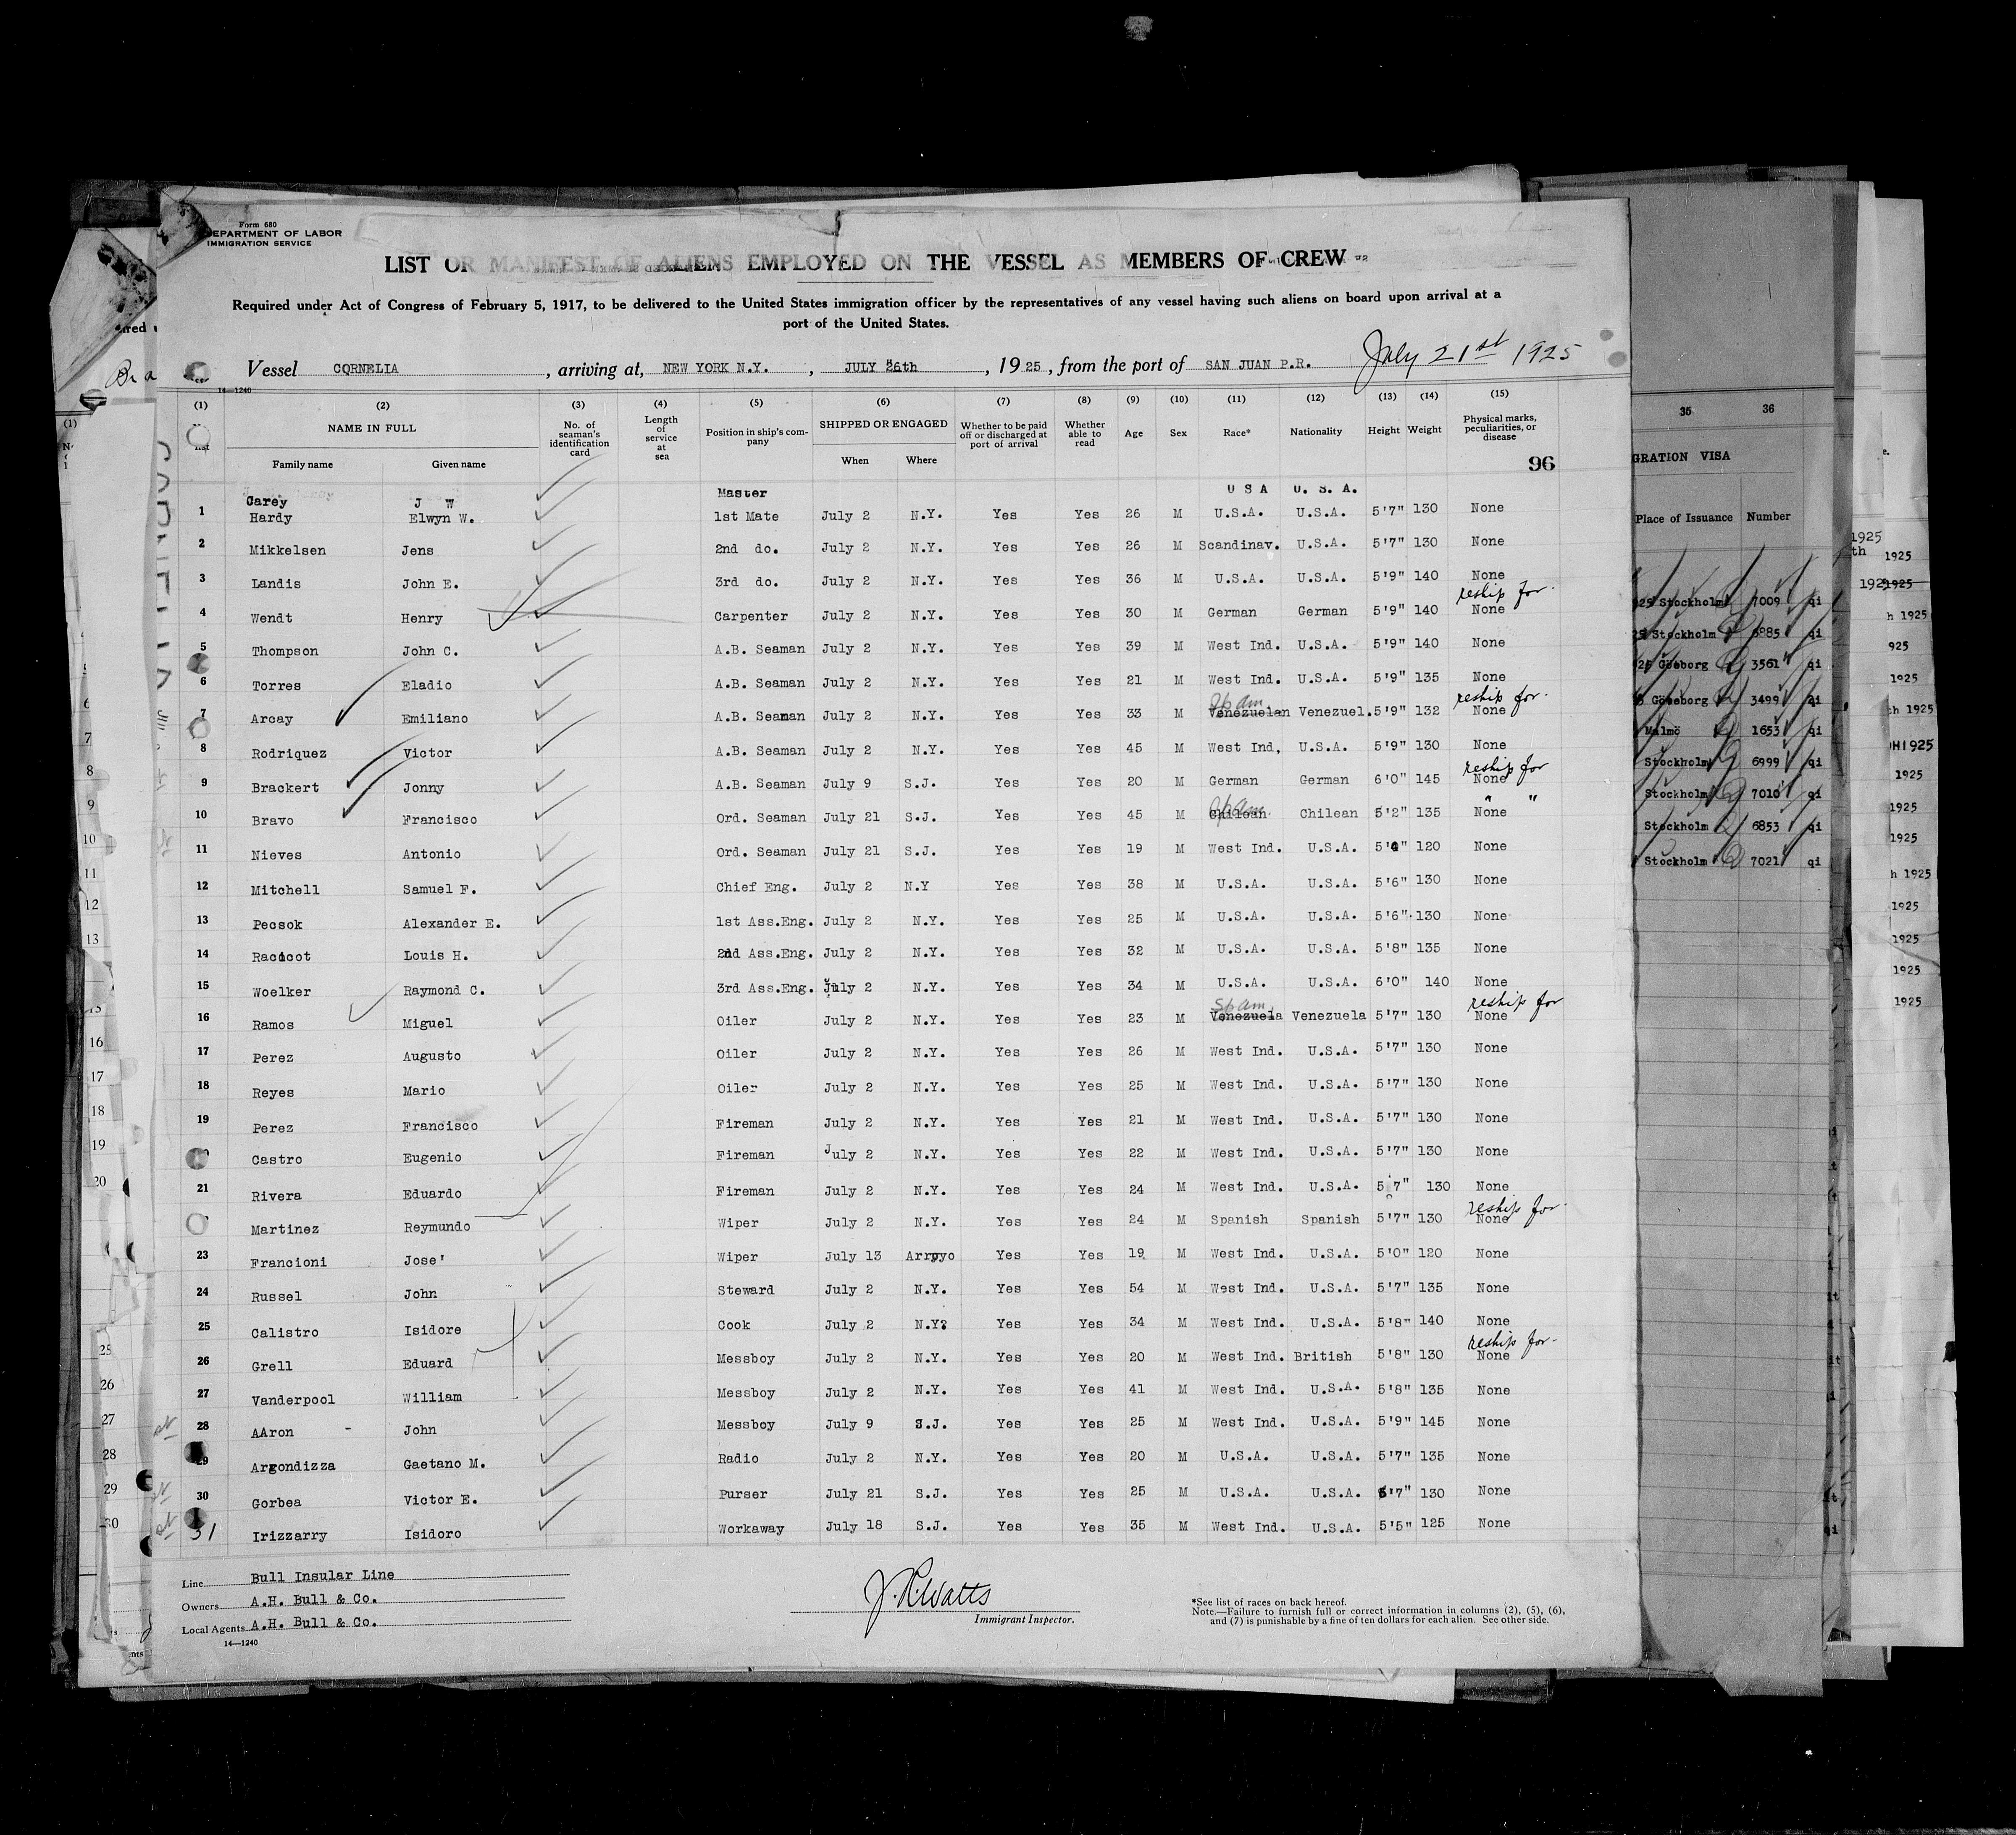 Form 680
DEPARTMENT OF LABOR
IMMIGRATION SERVICE
LIST OR MANIFEST OF ALIENS EMPLOYED ON THE VESSEL AS MEMBERS OF CREW
Required under Act of Congress of February 5, 1917, to be delivered to the United States immigration officer by the representatives of any vessel having such aliens on board upon arrival at a
port of the United States.
Vessel CORNELIA, arriving at, NEW YORK N.Y., JULY 26th, 1925, from the port of SAN JUAN P.R. July 21st 1925
14—1240
(1) (2) (3) (4) (5) (6) (7) (8) (9) (10) (11) (12) (13) (14) (15)
NAME IN FULL No. of seaman's identification card Length of service at sea Position in ship's company SHIPPED OR ENGAGED Whether to be paid off or discharged at port of arrival Whether able to read Age Sex Race* Nationality Height Weight Physical marks, peculiarities, or disease
Family name Given name When Where
96
Carey J W Master U S A U. S. A.
1 Hardy Elwyn W. 1st Mate July 2 N.Y. Yes Yes 26 M U.S.A. U.S.A. 5'7" 130 None
2 Mikkelsen Jens 2nd do. July 2 N.Y. Yes Yes 26 M Scandinav. U.S.A. 5'7" 130 None
3 Landis John E. 3rd do. July 2 N.Y. Yes Yes 36 M U.S.A. U.S.A. 5'9" 140 None
reship for
4 Wendt Henry Carpenter July 2 N.Y. Yes Yes 30 M German German 5'9" 140 None
5 Thompson John C. A.B. Seaman July 2 N.Y. Yes Yes 39 M West Ind. U.S.A. 5'9" 140 None
6 Torres Eladio A.B. Seaman July 2 N.Y. Yes Yes 21 M West Ind. U.S.A. 5'9" 135 None
Sp am. reship for
7 Arcay Emiliano A.B. Seaman July 2 N.Y. Yes Yes 33 M Venezuelan Venezuel. 5'9" 132 None
8 Rodriquez Victor A.B. Seaman July 2 N.Y. Yes Yes 45 M West Ind, U.S.A. 5'9" 130 None
reship for
9 Brackert Jonny A.B. Seaman July 9 S.J. Yes Yes 20 M German German 6'0" 145 None
Sp am. " "
10 Bravo Francisco Ord. Seaman July 21 S.J. Yes Yes 45 M Chilean Chilean 5'2" 135 None
11 Nieves Antonio Ord. Seaman July 21 S.J. Yes Yes 19 M West Ind. U.S.A. 5'4" 120 None
12 Mitchell Samuel F. Chief Eng. July 2 N.Y Yes Yes 38 M U.S.A. U.S.A. 5'6" 130 None
13 Pecsok Alexander E. 1st Ass.Eng. July 2 N.Y. Yes Yes 25 M U.S.A. U.S.A. 5'6" 130 None
14 Racicot Louis H. 2nd Ass.Eng. July 2 N.Y. Yes Yes 32 M U.S.A. U.S.A. 5'8" 135 None
15 Woelker Raymond C. 3rd Ass.Eng. July 2 N.Y. Yes Yes 34 M U.S.A. U.S.A. 6'0" 140 None
Sp am. reship for
16 Ramos Miguel Oiler July 2 N.Y. Yes Yes 23 M Venezuela Venezuela 5'7" 130 None
17 Perez Augusto Oiler July 2 N.Y. Yes Yes 26 M West Ind. U.S.A. 5'7" 130 None
18 Reyes Mario Oiler July 2 N.Y. Yes Yes 25 M West Ind. U.S.A. 5'7" 130 None
19 Perez Francisco Fireman July 2 N.Y. Yes Yes 21 M West Ind. U.S.A. 5'7" 130 None
Castro Eugenio Fireman July 2 N.Y. Yes Yes 22 M West Ind. U.S.A. 5'7" 130 None
21 Rivera Eduardo Fireman July 2 N.Y. Yes Yes 24 M West Ind. U.S.A. 5'7" 130 None
reship for
Martinez Reymundo Wiper July 2 N.Y. Yes Yes 24 M Spanish Spanish 5'7" 130 None
23 Francioni Jose' Wiper July 13 Arroyo Yes Yes 19 M West Ind. U.S.A. 5'0" 120 None
24 Russel John Steward July 2 N.Y. Yes Yes 54 M West Ind. U.S.A. 5'7" 135 None
25 Calistro Isidore Cook July 2 N.Y? Yes Yes 34 M West Ind. U.S.A. 5'8" 140 None
reship for
26 Grell Eduard Messboy July 2 N.Y. Yes Yes 20 M West Ind. British 5'8" 130 None
27 Vanderpool William Messboy July 2 N.Y. Yes Yes 41 M West Ind. U.S.A. 5'8" 135 None
28 AAron - John Messboy July 9 S.J. Yes Yes 25 M West Ind. U.S.A. 5'9" 145 None
29 Argondizza Gaetano M. Radio July 2 N.Y. Yes Yes 20 M U.S.A. U.S.A. 5'7" 135 None
30 Gorbea Victor E. Purser July 21 S.J. Yes Yes 25 M U.S.A. U.S.A. 5'7" 130 None
31 Irizzarry Isidoro Workaway July 18 S.J. Yes Yes 35 M West Ind. U.S.A. 5'5" 125 None
Line Bull Insular Line
Owners A.H. Bull & Co.
Local Agents A.H. Bull & Co.
14—1240
J. R. Watts
Immigrant Inspector.
*See list of races on back hereof.
Note.—Failure to furnish full or correct information in columns (2), (5), (6),
and (7) is punishable by a fine of ten dollars for each alien. See other side.
35 36
GRATION VISA
Place of Issuance Number
25 Stockholm 7009 qi
Stockholm 6885 qi
Göteborg 3561 qi
Göteborg 3499 qi
Malmö 1653 qi
Stockholm 6999 qi
Stockholm 7010 qi
Stockholm 6853 qi
Stockholm 7021 qi